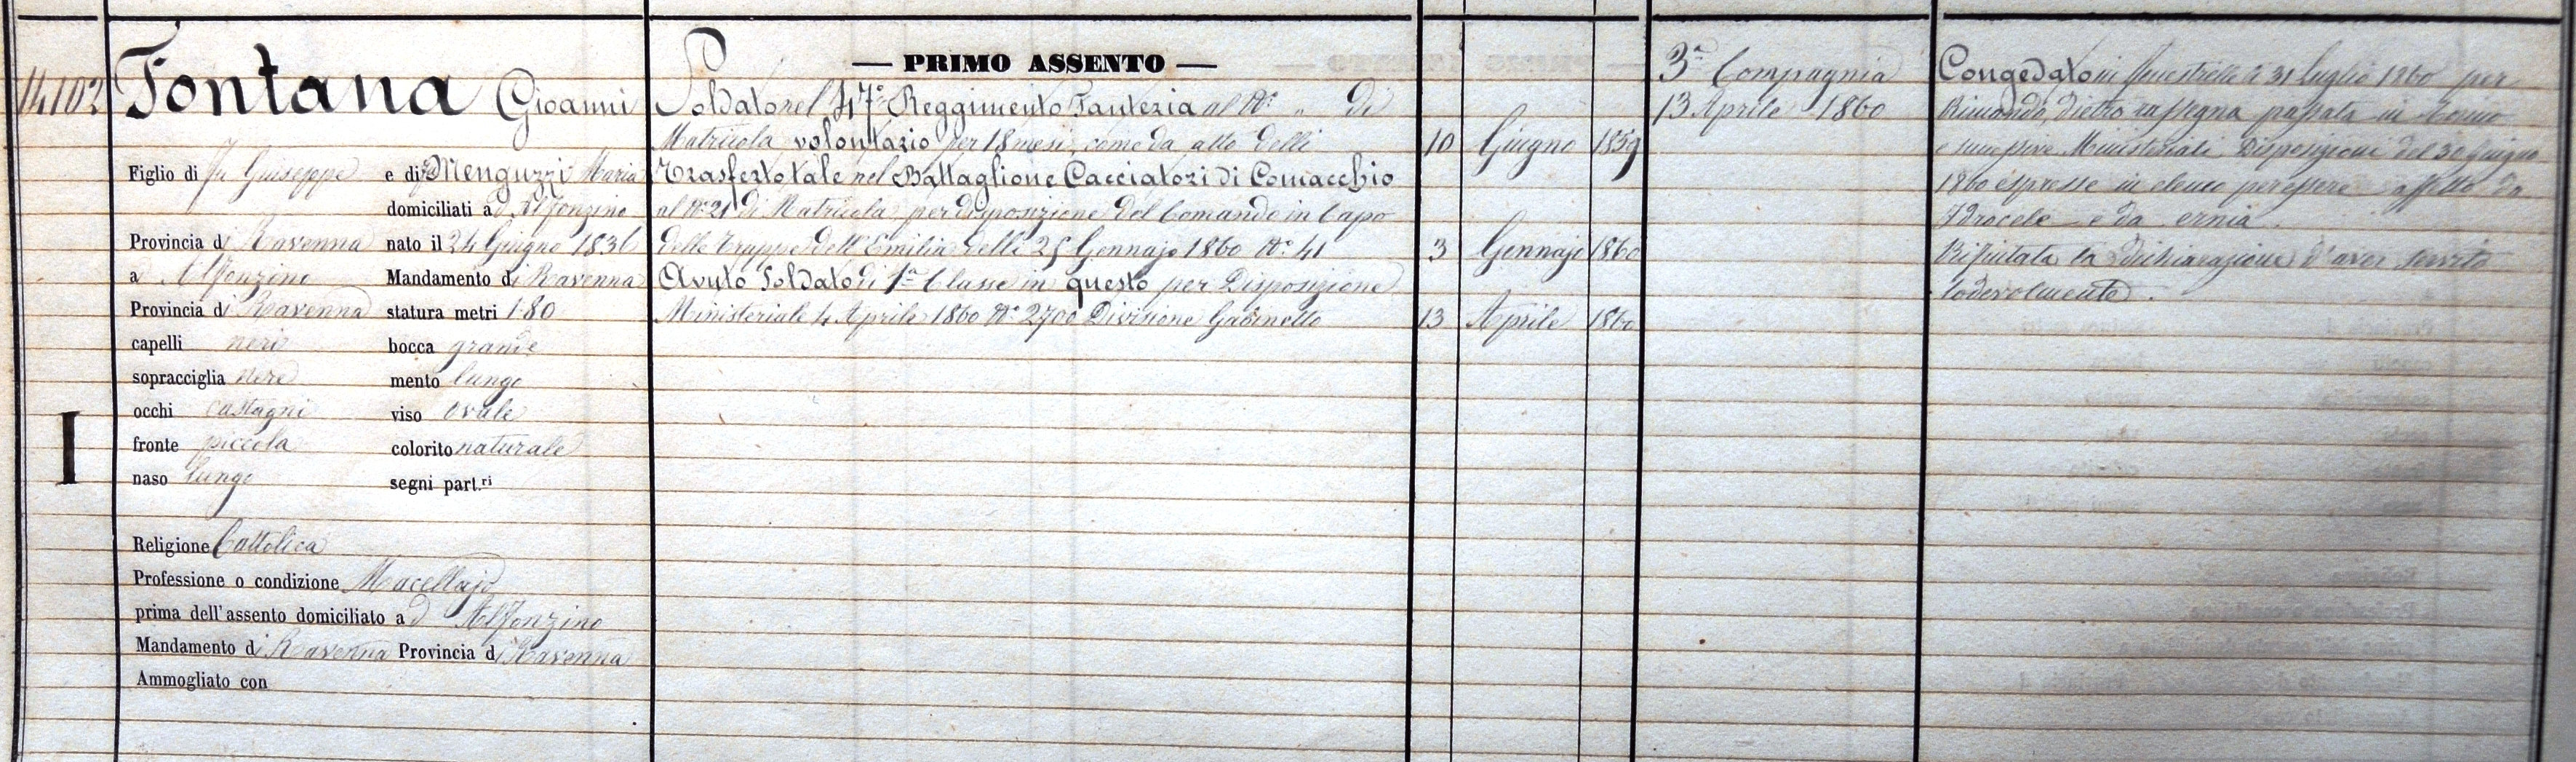 14102
Fontana Gioanni
Figlio di fu Guiseppe e di fu Menguzzi Maria
domiciliati a d' Alfonzino
Provincia di Ravenna nato il 24 Giugno 1836
a d Alfonzino Mandamento di Ravenna
Provincia di Ravenna statura metri 1.80
capelli neri bocca grande
sopracciglia nere mento lungo
occhi castagni viso ovale
I
fronte piccola colorito naturale
naso lungo segni part.ri
Religione Cattolica
Professione o condizione Macellajo
prima dell'assento domiciliato a d Alfonzino
Mandamento di Ravenna Provincia di Ravenna
Ammogliato con
— PRIMO ASSENTO —
Soldato nel 47° Reggimento Fanteria al N° „ di
Matricola volontario per 18 mesi, come da atto delli 10 Giugno 1859
Trasferto tale nel Battaglione Cacciatori di Comacchio
al N° 21 di Matricola per disposizione del Comando in Capo
delle Truppe dell'Emilia delli 25 Gennajo 1860 N° 41 3 Gennajo 1860
Avuto Soldato di 1a Classe in questo per Disposizione
Ministeriale 4 Aprile 1860 N° 2700 Divisione Gabinetto 13 Aprile 1860
3a Compagnia
13 Aprile 1860
Congedato in Fenestrelle li 31 luglio 1860 per
Rimando, dietro rassegna passata in Torino
e successive Ministeriali Disposizioni del 30 Giugno
1860 espresse in elenco per essere affetto da
Idrocele e da ernia.
Rifiutata la dichiarazione d'aver servito
lodevolmente.